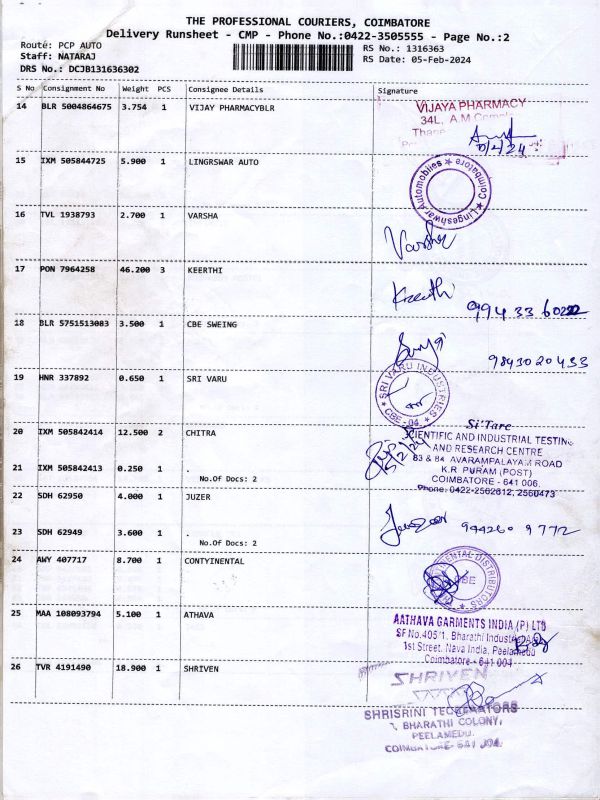 THE PROFESSIONAL COURIERS, COIMBATORE
Delivery Runsheet - CMP - Phone No.:0422-3505555 - Page No.:2
Route: PCP AUTO
Staff: NATARAJ
DRS No.: DCJB131636302
RS No.: 1316363
RS Date: 05-Feb-2024
S No Consignment No Weight PCS Consignee Details Signature
14 BLR 5004864675 3.754 1 VIJAY PHARMACYBLR
VIJAYA PHARMACY
34L, A.M
15 IXM 505844725 5.900 1 LINGRSWAR AUTO
Lingeshwar Automobiles ★ Coimbatore ★
16 TVL 1938793 2.700 1 VARSHA
Varsha
17 PON 7964258 46.200 3 KEERTHI
Keerthi
18 BLR 5751513083 3.500 1 CBE SWEING
Surya 9843020433
19 HNR 337892 0.650 1 SRI VARU
★ SRI VARU INDUSTRIES ★ CBE-04.
20 IXM 505842414 12.500 2 CHITRA
Si'Tare
SCIENTIFIC AND INDUSTRIAL TESTING
AND RESEARCH CENTRE
83 & 84 AVARAMPALAYAM ROAD
K.R. PURAM (POST)
COIMBATORE - 641 006.
Phone: 0422-2562612, 2560473
21 IXM 505842413 0.250 1 .
No.Of Docs: 2
22 SDH 62950 4.000 1 JUZER
23 SDH 62949 3.600 1 .
No.Of Docs: 2
24 AWY 407717 8.700 1 CONTYINENTAL
DISTRIBUTORS ★ CBE
25 MAA 108093794 5.100 1 ATHAVA
AATHAVA GARMENTS INDIA (P) LTD
SF No.405/1, Bharathi
1st Street, Nava India, Peelamedu
Coimbatore - 641 004
26 TVR 4191490 18.900 1 SHRIVEN
SHRIVEN
SHRISRINI
BHARATHI COLONY,
PEELAMEDU,